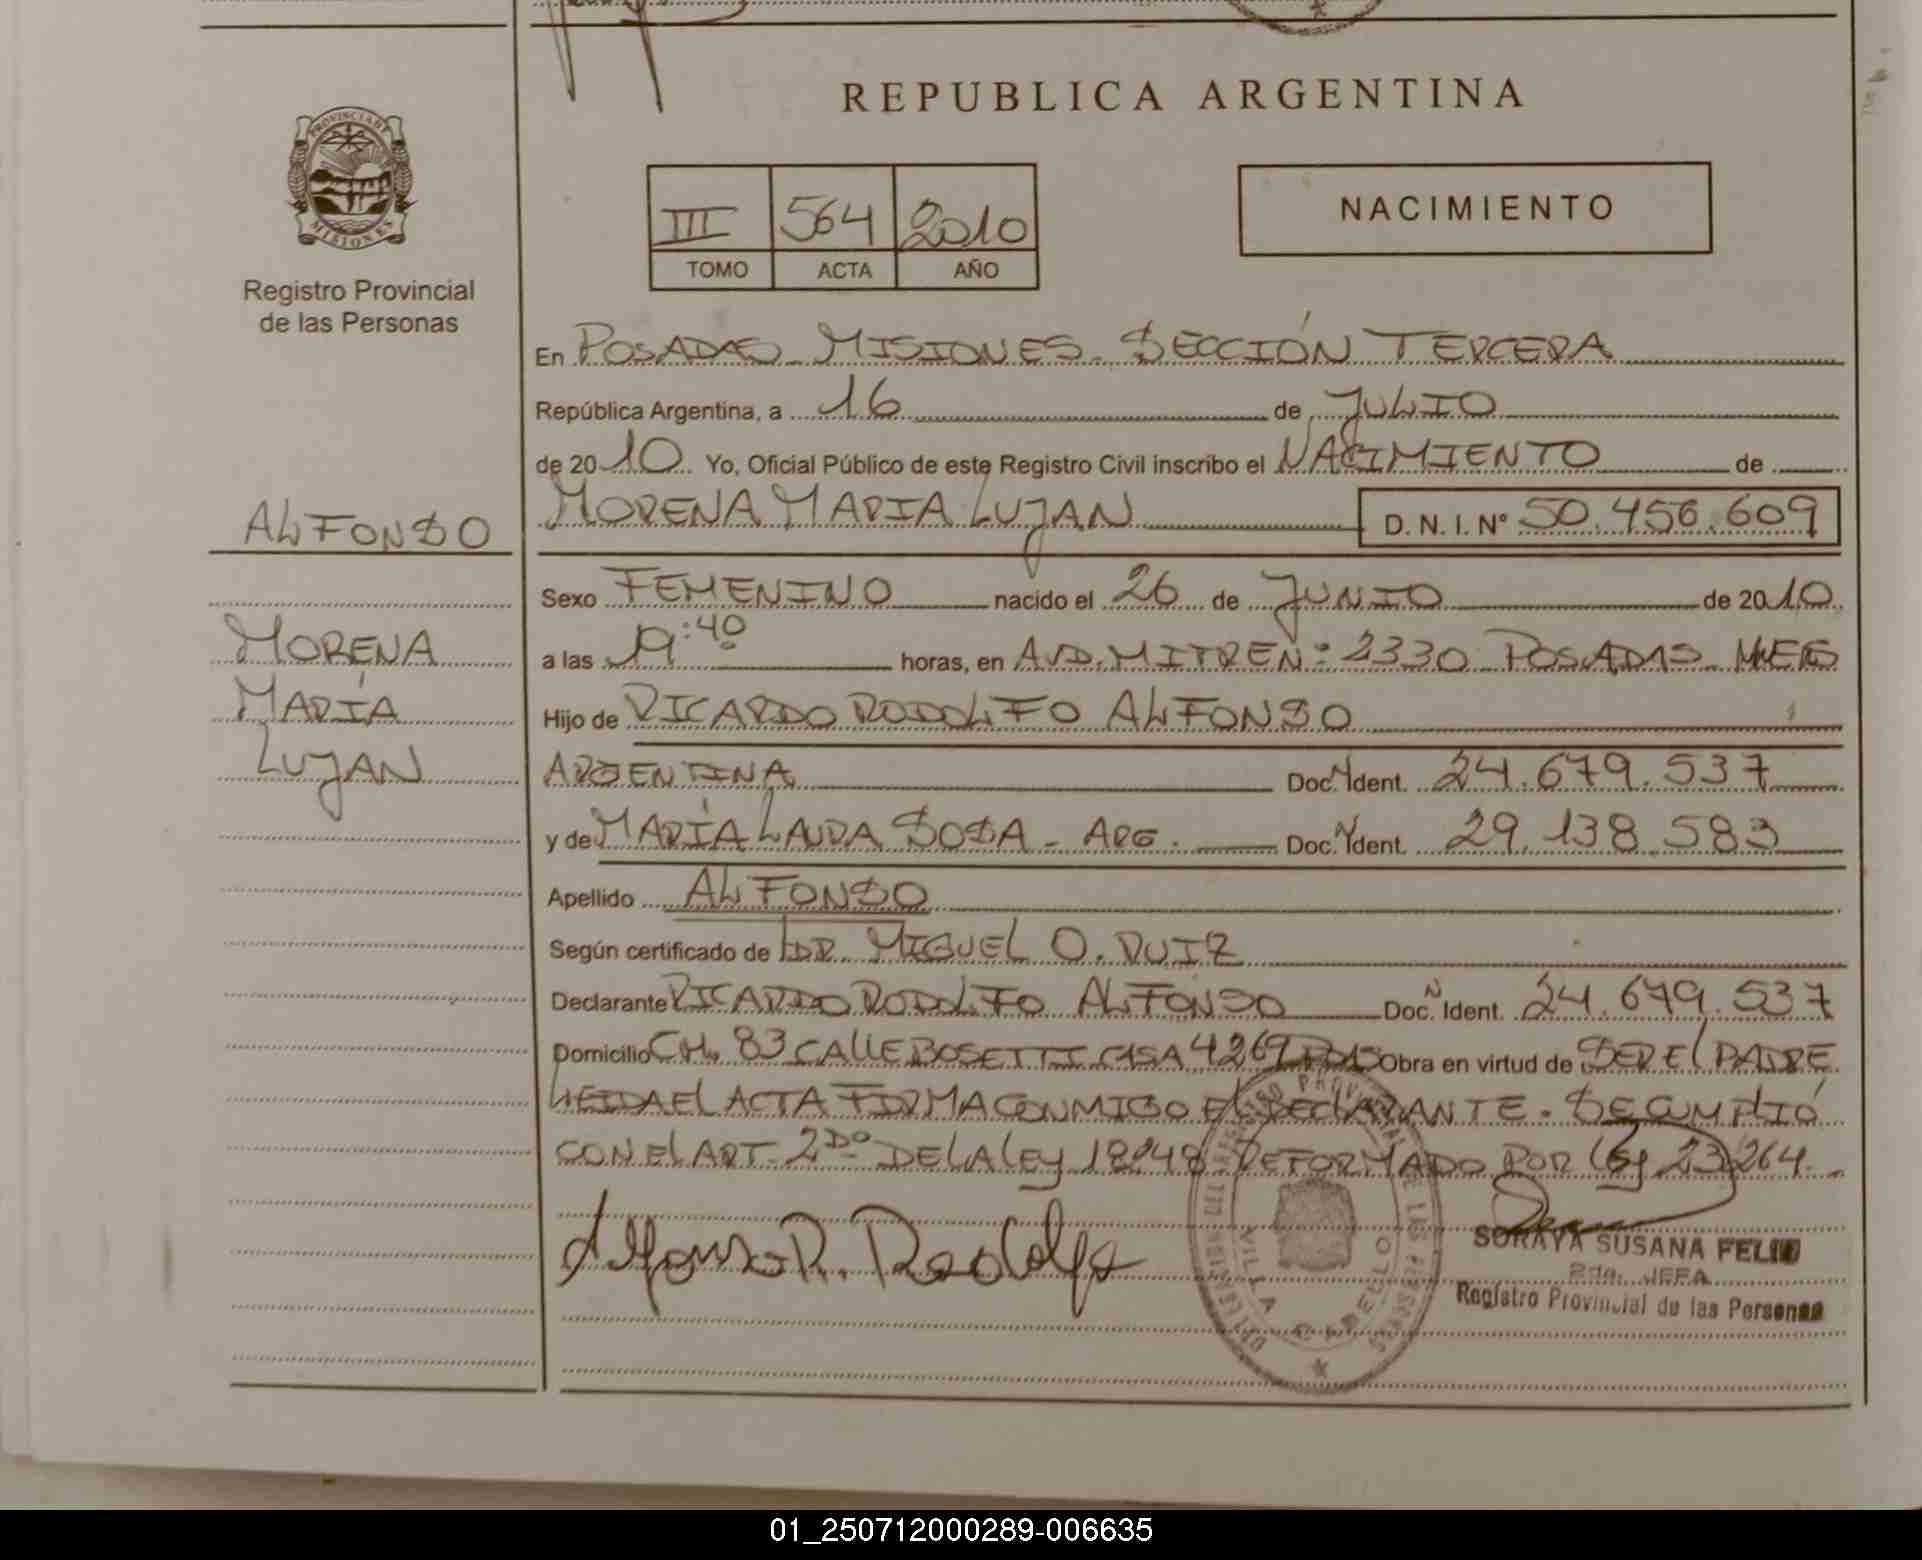 REPUBLICA ARGENTINA
PROVINCIA DE
MISIONES
Registro Provincial
de las Personas
III 564 2010
TOMO ACTA AÑO
NACIMIENTO
En POSADAS - MISIONES - SECCIÓN TERCERA
República Argentina, a 16 de JULIO
de 2010 Yo, Oficial Público de este Registro Civil inscribo el NACIMIENTO de
MORENA MARIA LUJAN D. N. I. Nº 50.456.609
ALFONSO
MORENA
MARÍA
LUJAN
Sexo FEMENINO nacido el 26 de JUNIO de 2010
a las 19:40 horas, en AVD. MITRE Nº 2330 POSADAS MNES
Hijo de RICARDO RODOLFO ALFONSO
ARGENTINA Doc. N Ident. 24.679.537
y de MARÍA LAURA SOSA - ARG. Doc. N Ident. 29.138.583
Apellido ALFONSO
Según certificado de DR. MIGUEL O. RUIZ
Declarante RICARDO RODOLFO ALFONSO Doc. N Ident. 24.679.537
Domicilio CH. 83 CALLE BOSETTI CASA 4269 PDAS Obra en virtud de SER EL PADRE
LEIDA EL ACTA FIRMA CONMIGO EL DECLARANTE. SE CUMPLIÓ
CON EL ART. 2DO DE LA LEY 18248 REFORMADO POR LEY 23264.
Alfonso R. Rodolfo
VILLA CABELLO
SORAYA SUSANA FELIU
2da. JEFA
Registro Provincial de las Personas
01_250712000289-006635